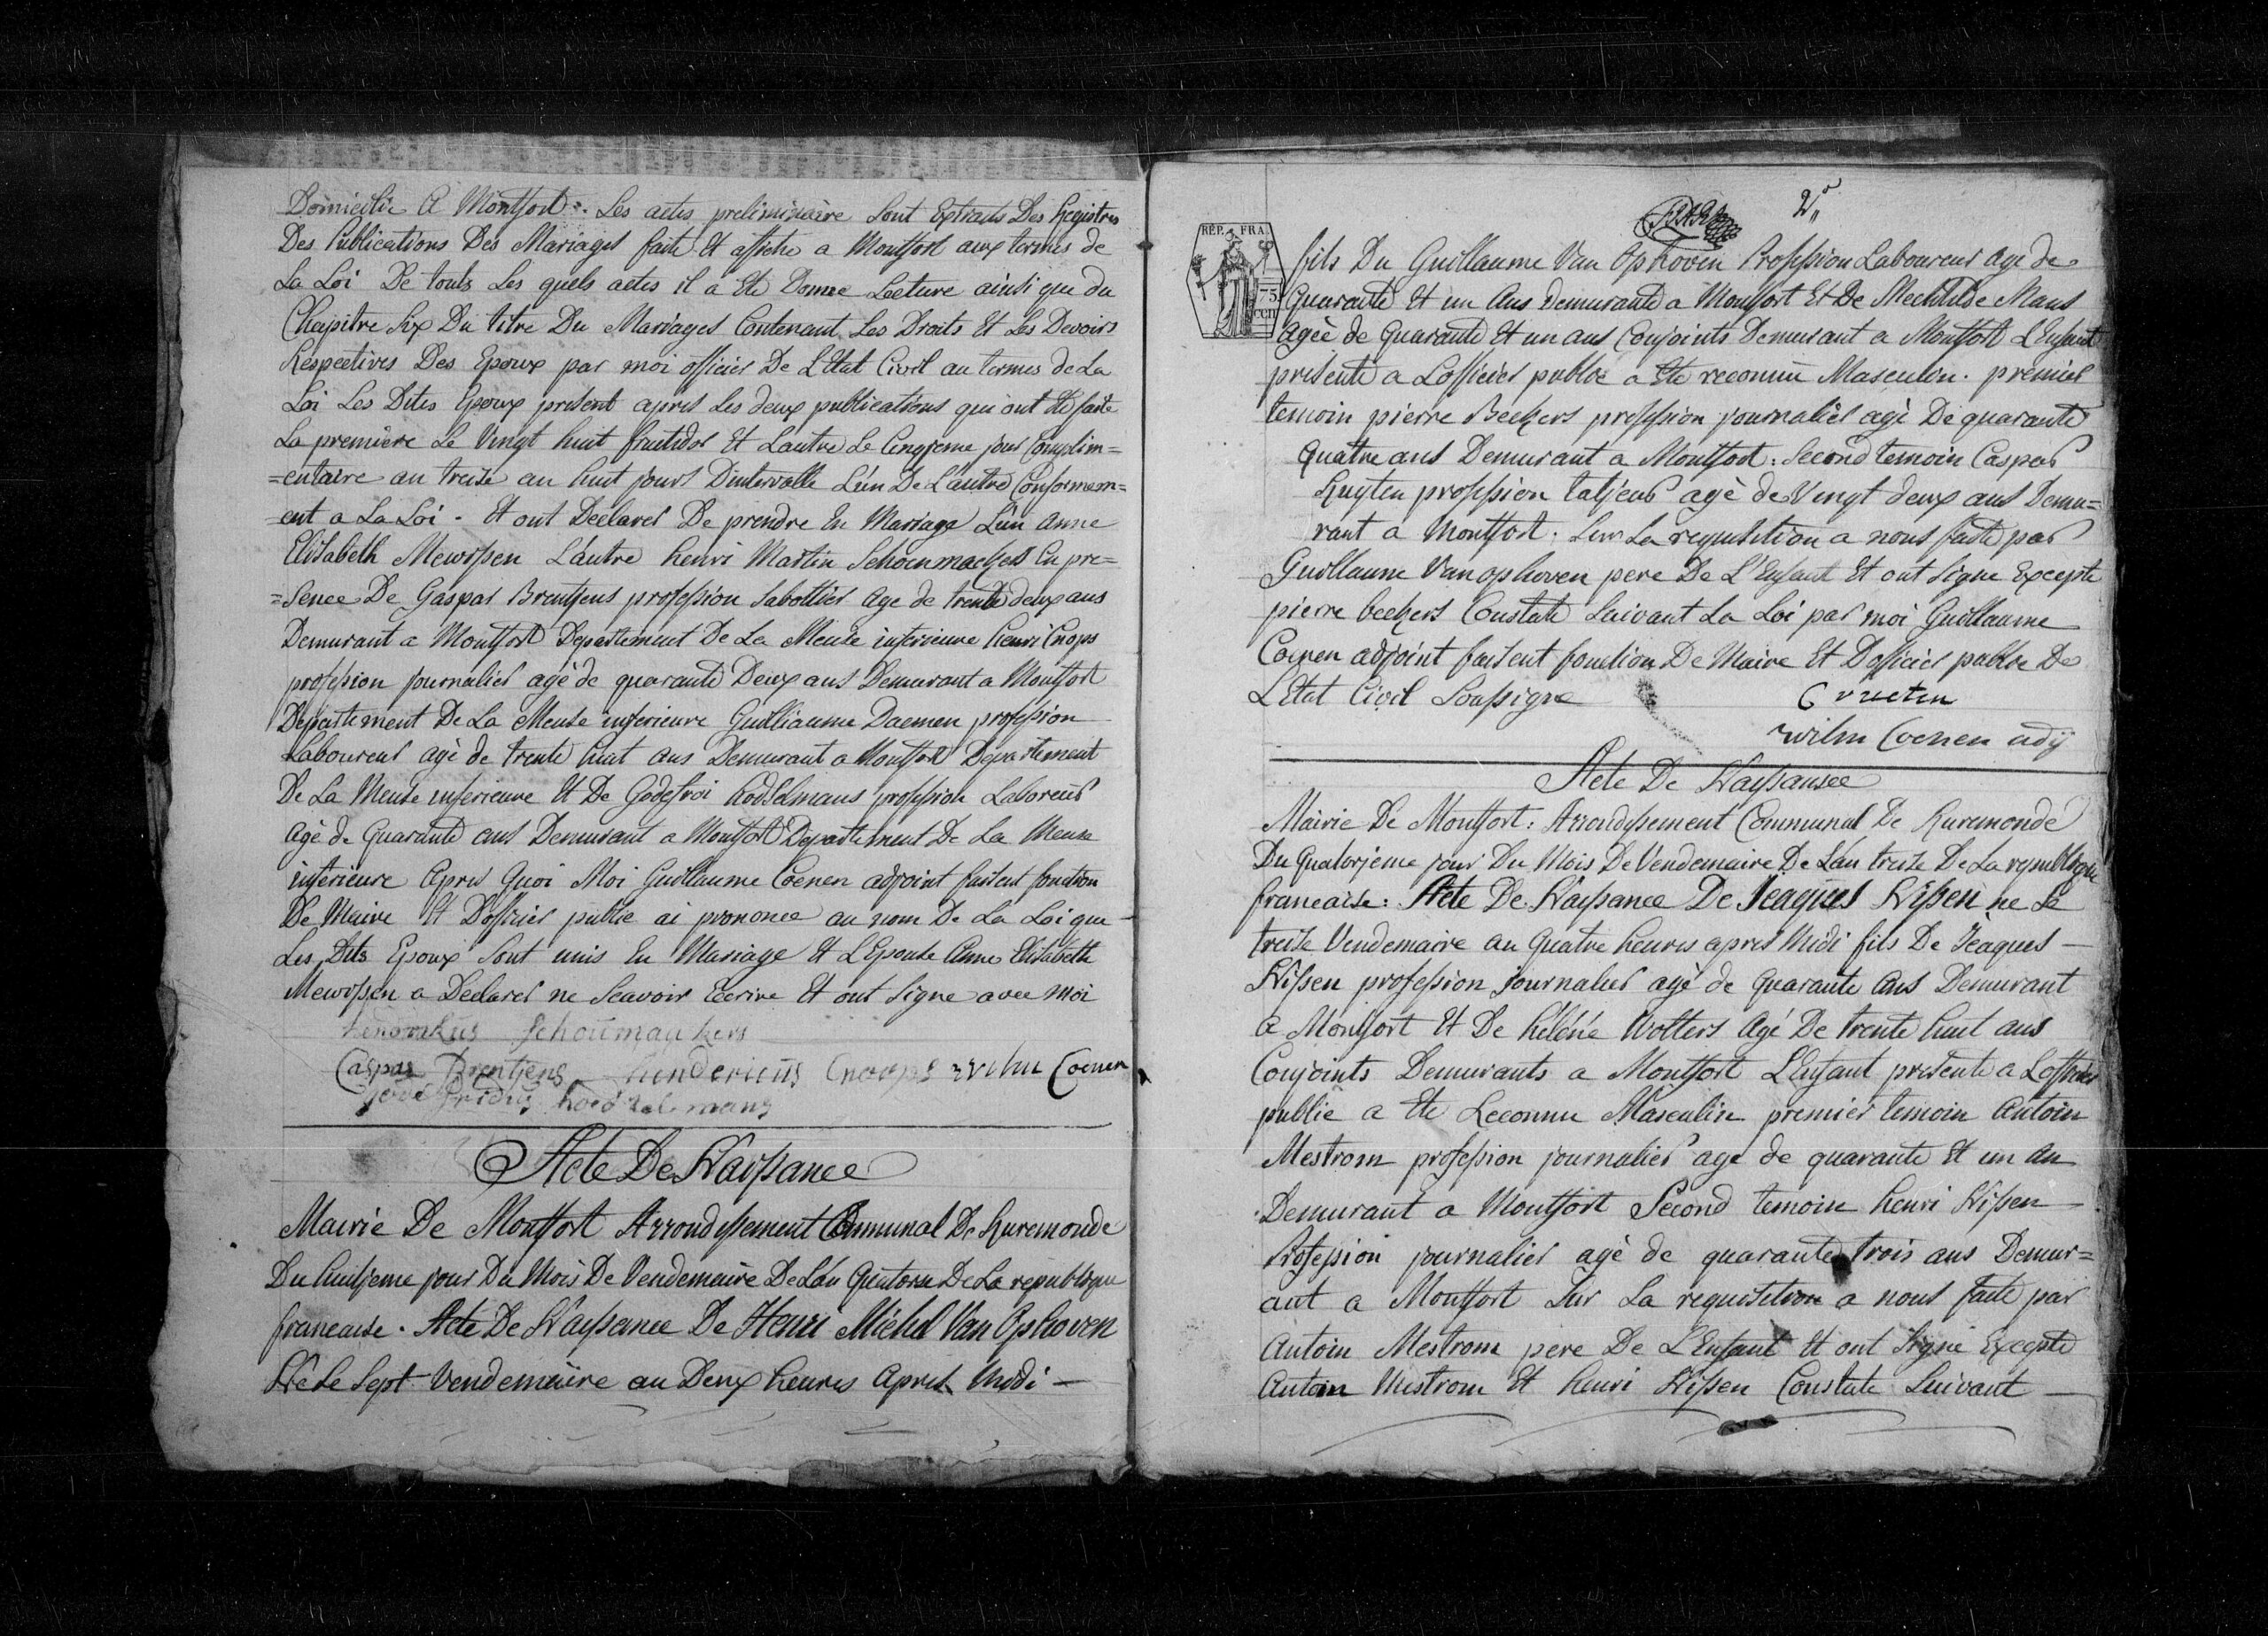 Domicilie A Montfort. Les actes preliminaire sont Extraits Des Registres
Des Publications Des Mariages faite Et affiche a Montfort aux termes de
La Loi De touts Les quels actes il a Ete Donne Lecture ainsi que du
Chapitre Six Du titre Du Mariages Contenant Les Droits Et Les Devoirs
Respectives Des Epoux par moi officier De L'Etat Civil au termes de La
Loi Les Dites Epoux present apres les deux publications qui ont Ete faite
La premiere Le Vingt huit fructidor Et Lautre Le Cinqieme jour Complim=
=entaire an treize an huit jours D'intervalle L'un De L'autre Conformem=
=ent a La Loi. Et ont Declarer De prendre En Mariage L'un Anne
Elisabeth Mewissen L'autre henri Martin Schoenmackers En pre=
=sence De Gaspar Brentjens profession Sabottier age de trente deux ans
Demurant a Montfort Departement De La Meuse inferieure henri Cnops
profession journalier agé de quarante Deux ans Demurant a Montfort
Departement De La Meuse inferieure Guilliaume Daemen profession
Laboureur agé de trente huit ans Demurant a Montfort Departement
De La Meuse inferieure Et De Godefroi hodselmans profession Laboreur
Agé de Quarante ans Demurant a Montfort Departement De La Meuse
inferieure Apres Quoi Moi Guillaume Coenen adjoint faisent fonction
De Maire Et D'officier public ai prononce au nom De La Loi que
Les Dits Epoux sont unis En Mariage Et L'Epouse Anne Elisabeth
Mewissen a Declarer ne Scavoir Ecrire Et ont signe avec moi
hendrikus Schoumaykers
Caspar Brentjens hendericus Cnoops wilm Coenen
godefridus hoedselmans
Acte De Nayssance
Mairie De Montfort Arrondissement Communal De Ruremonde
Du huitjeme jour Du Mois De Vendemaire De L'an Quatorse De La republique
francaise. Acte De Nayssance De Henri Michel Van Ophoven
Né Le Sept Vendemaire au Deux heures Apres Midi —
2
RÉP. FRA.
75 cen
fils Du Guillaume Van Ophoven Profession Laboureur Age de
Quarante Et un Ans Demurante a Montfort Et De Mechtilde Mans
Agée de Quarante Et un ans Conjoints Demurant a Montfort L'Enfant
presente a L'officier public a Ete reconnu Masculin. premier
temoin pierre Beckers profession journalier agé De quarante
Quatre ans Demurant a Montfort: Second temoin Caspar
Ruyten profession taljeur agé de Vingt deux ans Demu=
rant a Montfort. Sur La requisition a nous faite par
Guillaume Van ophoven pere De L'Enfant Et ont Signe Excepte
pierre beckers Constate Suivant La Loi par moi Guillaume
Coenen adjoint faisent fonction De Maire Et D'officier public De
L'Etat Civil Soussigne
C rueten
wilm Coenen adj
Acte De Nayssansce
Mairie De Montfort: Arrondissement Communal De Ruremonde
Du Quatorjeme jour Du Mois De Vendemaire De L'an treize De La republique
francaise: Acte De Nayssance De Jeaques Nissen ne Le
treize Vendemaire au Quatre heures apres Midi fils De Jeaques —
Nissen profession journalier agé de quarante Ans Demurant
a Montfort Et De héléne Wolters Agé De trente huit ans
Conjoints Demurants a Montfort L'Enfant presente a L'officier
public a Ete Reconnu Masculin premier temoin Antoin
Mestrom profession journalier age de quarante Et un An
Demurant a Montfort Second temoin henri Nissen
Profession journalier agé de quarante trois ans Demur=
ant a Montfort Sur La requisition a nous faite par
Antoin Mestrom pere De L'Enfant Et ont Signe Excepte
Antoin Mestrom Et henri Nissen Constate Suivant —